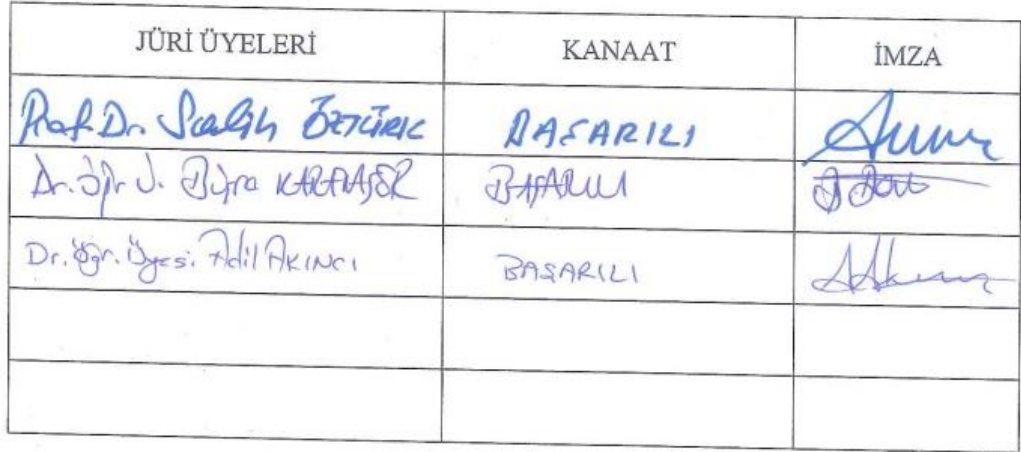 JÜRİ ÜYELERİ KANAAT İMZA
Prof. Dr. Salih ÖZTÜRK BAŞARILI
Dr. Öğr. Ü. Büşra KARATAŞER BAŞARILI
Dr. Öğr. Üyesi. Adil AKINCI BAŞARILI